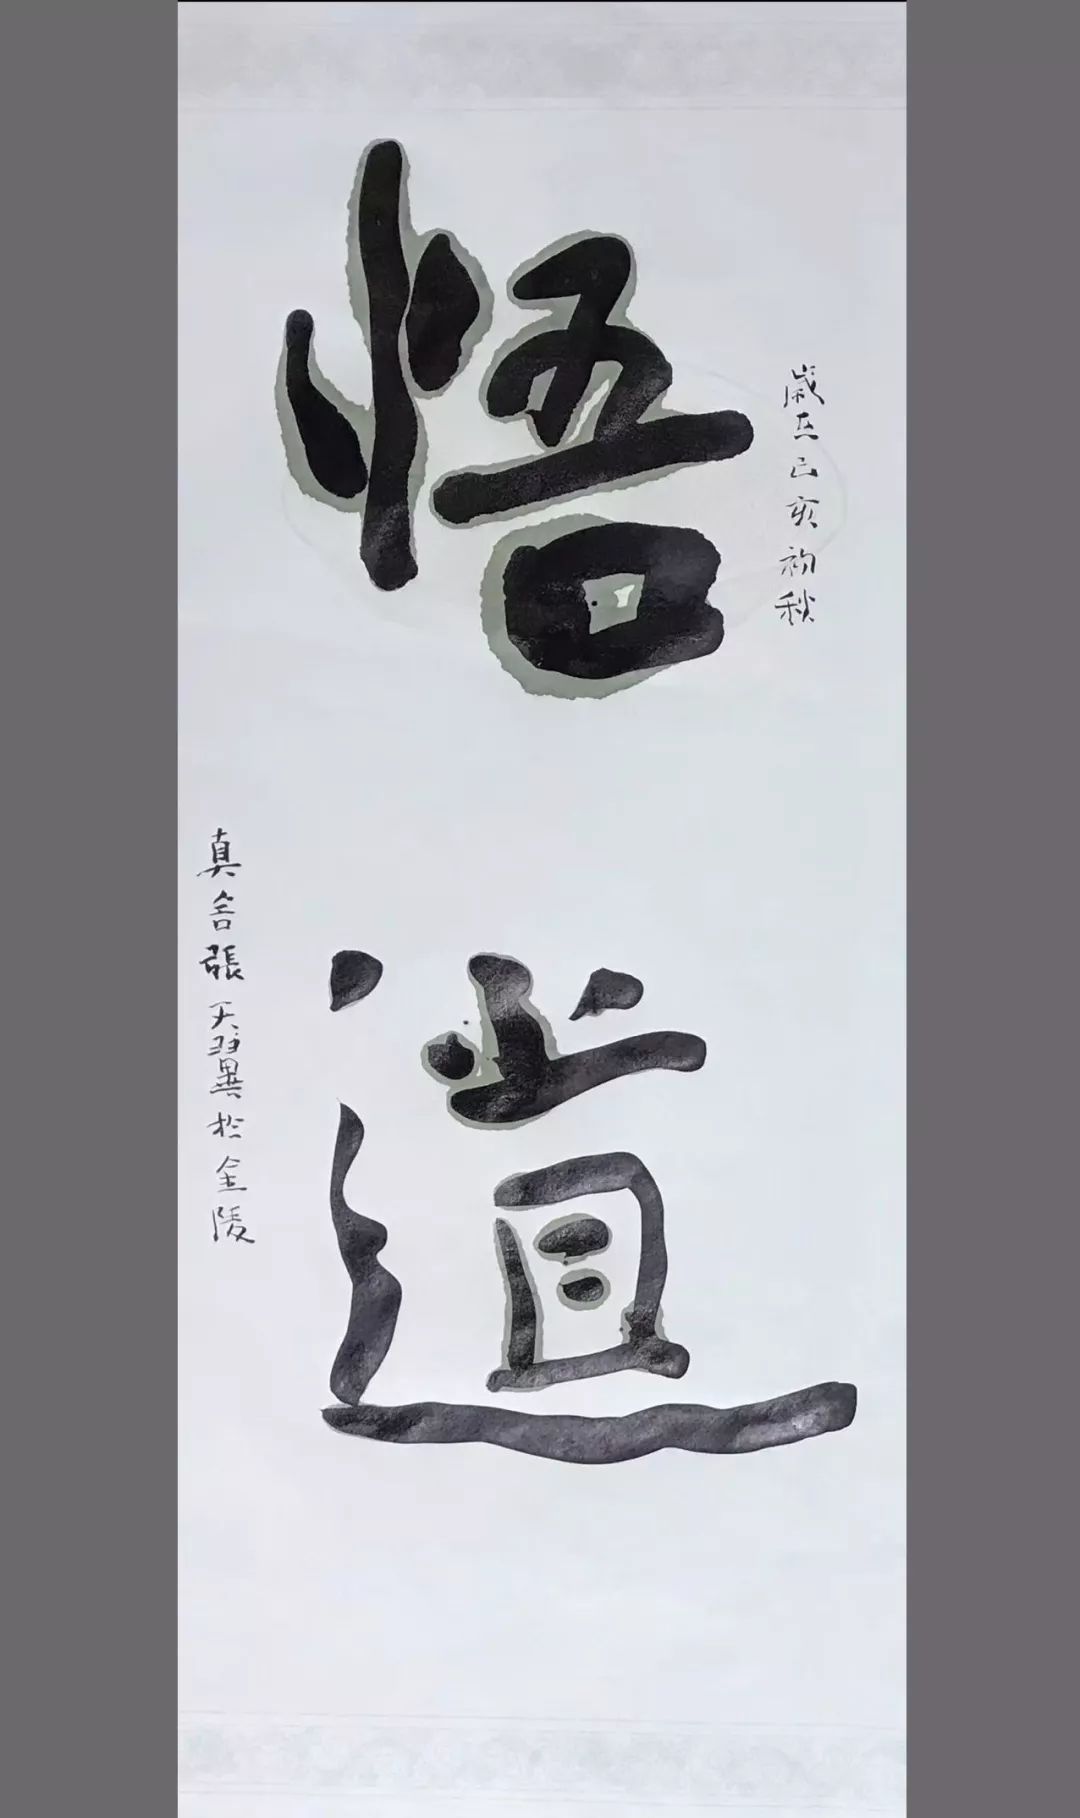 悟道
歲在己亥初秋
真舍張天翼於金陵